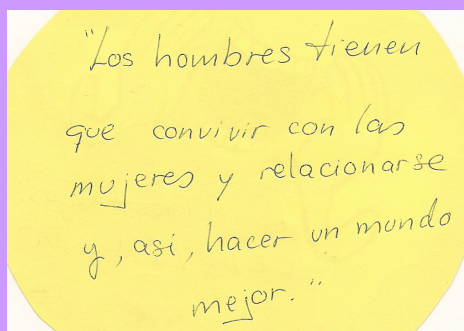 "Los hombres tienen
que convivir con las
mujeres y relacionarse
y, asi, hacer un mundo
mejor."